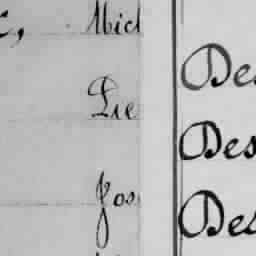 Mich
Pie
Des
Des
Jos
Des